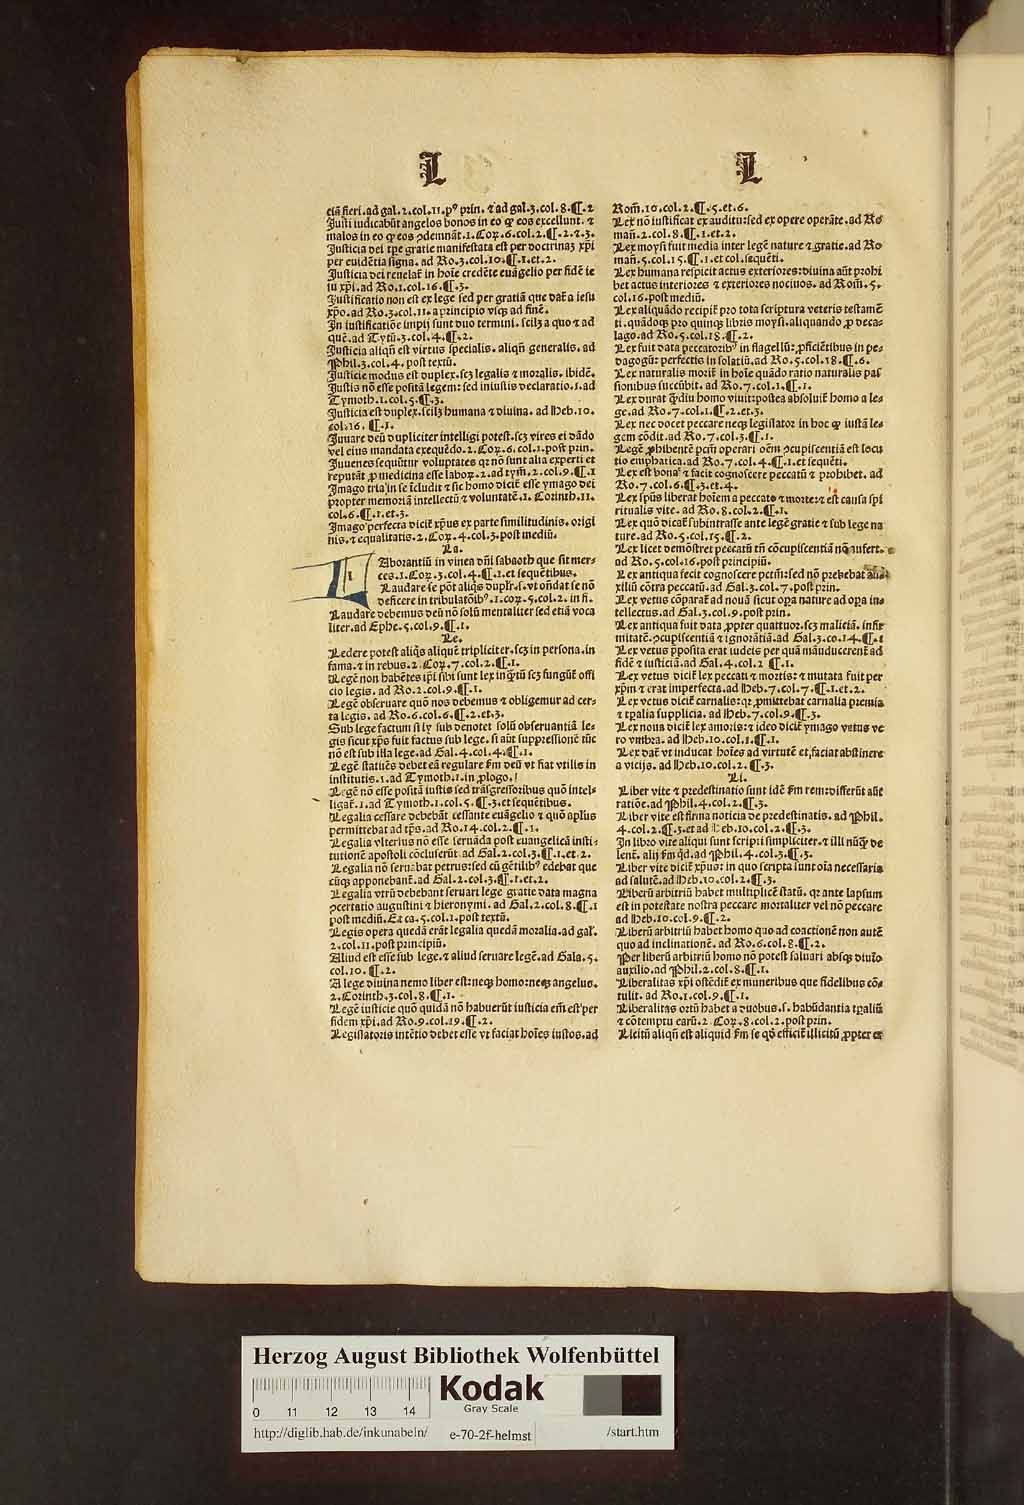 L
eiā fieri.ad gal.2.col.11.pº prin. ⁊ ad gal.3.col.8.¶.2
Justi iudicabūt angelos bonos in eo ꝙ eos excellunt. ⁊
malos in eo ꝙ eos ꝯdemnāt.1.Coꝝ.6.col.2.¶.2.⁊.3.
Justicia dei tꝑe gratie manifestata est per doctrinaʒ xp̄i
per euidētia signa. ad Ro.3.col.10.¶.1.et.2.
Justicia dei reuelat̄ in hoīe credēte euāgelio per fidē ie
su xp̄i.ad Ro.1.col.16.¶.3.
Justificatio non est ex lege sed per gratiā que dat̄ a iesu
xp̄o.ad Ro.3.col.11.a principio vsqꝫ ad finē.
In iustificatiōe impij sunt duo termini. scilꝫ a quo ⁊ ad
quē.ad Tytū.3.col.4.¶.2.
Justicia aliqñ est virtus specialis. aliqñ generalis. ad
Phil.3.col.4. post textū.
Justicie modus est duplex.scꝫ legalis ⁊ moralis. ibidē.
Justis nō esse positā legem: sed iniustis declaratio.1.ad
Tymoth.1.col.5.¶.3.
Justicia est duplex.scilꝫ humana ⁊ diuina. ad Heb.10.
col.16. ¶.1.
Juuare deū dupliciter intelligi potest.scꝫ vires ei dādo
vel eius mandata exequēdo.2.Coꝝ.6.col.1.post prin.
Juuenes sequūtur voluptates qꝛ nō sunt alia experti et
reputāt ꝓ medicina esse laboꝝ.2.ad tym̄.2.col.9.¶.1
Imago tria in se īcludit ⁊ sic homo dicit̄ esse ymago dei
propter memoriā intellectū ⁊ voluntatē.1. Corinth.11.
col.6.¶.1.et.3.
Imago perfecta dicit̄ xp̄us ex parte similitudinis. origi
nis.⁊ equalitatis.2.Coꝝ.4.col.3.post mediū.
La.
l
Aborantiū in vinea dn̄i sabaoth que sit mer-
ces.1.Coꝝ.3.col.4.¶.1.et sequētibus.
Laudare se pōt aliq̄s duplr̄.s.vt on̄dat se nō
deficere in tribulatōibꝰ.1.coꝝ.5.col.2. in fi.
Laudare debemus deū nō solū mentaliter sed etiā voca
liter.ad Ephe.5.col.9.¶.1.
Le.
Ledere potest aliq̄s aliquē tripliciter.scꝫ in persona.in
fama.⁊ in rebus.2.Coꝝ.7.col.2.¶.1.
Legē non habētes ip̄i sibi sunt lex inq̄ꝫtū scꝫ fungūt̄ offi
cio legis. ad Ro.2.col.9.¶.1.
Legē obseruare quō nos debemus ⁊ obligemur ad cer-
ta legis. ad Ro.6.col.6.¶.2.et.3.
Sub lege factum si ly sub denotet solū obseruantiā le-
gis sicut xp̄s fuit factus sub lege. si aūt suppressionē tūc
nō est sub illa lege.ad Gal.4.col.4.¶.1.
Legē statuēs debet eā regulare ẜm deū vt fiat vtilis in
institutis.1.ad Tymoth.1.in ꝓlogo.
Legē nō esse positā iustis sed trāsgressoribus quō intel-
ligat̄.1.ad Tymoth.1.col.5.¶.3.et sequētibus.
Legalia cessare debebāt cessante euāgelio ⁊ quō aplus
permittebat ad tp̄s.ad Ro.14.col.2.¶.1.
Legalia vlterius nō esse seruāda post euangelicā insti-
tutionē apostoli cōcluserūt ad Gal.2.col.3.¶.1.et.2.
Legalia nō seruabat petrus:sed cū gētilibꝰ edebat que
cūqꝫ apponebant̄.ad Gal.2.col.3.¶.1.et.2.
Legalia vtrū debebant seruari lege gratie data magna
ꝯcertatio augustini ⁊ hieronymi. ad Gal.2.col.8.¶.1
post mediū.Et ca.5.col.1.post textū.
Legis opera quedā erāt legalia quedā moralia.ad gal̄.
2.col.11.post principiū.
Aliud est esse sub lege.⁊ aliud seruare legē.ad Gala.5.
col.10.¶.2.
A lege diuina nemo liber est:neqꝫ homo:neqꝫ angelus.
2.Corinth.3.col.8.¶.1.
Legē iusticie quō quidā nō habuerūt iusticia em̄ est per
fidem xp̄i.ad Ro.9.col.19.¶.2.
Legislatoris intētio debet esse vt faciat hoīes iustos.ad
L
Rom̄.10.col.2.¶.5.et.6.
Lex nō iustificat ex auditu:sed ex opere operāte.ad Ro
man̄.2.col.8.¶.1.et.2.
Lex moysi fuit media inter legē nature ⁊ gratie.ad Ro
man̄.5.col.15.¶.1.et col.sequēti.
Lex humana respicit actus exteriores:diuina aūt prohi
bet actus interiores ⁊ exteriores nociuos. ad Rom̄.5.
col.16.post mediū.
Lex aliquādo recipit̄ pro tota scriptura veteris testamē
ti.quādoqꝫ pro quinqꝫ libris moysi.aliquando ꝓ deca-
lago.ad Ro.5.col.18.¶.2.
Lex fuit data peccatoribꝰ in flagellū: ꝓficiētibus in pe-
dagogū: perfectis in solatiū.ad Ro.5.col.18.¶.6.
Lex naturalis morit̄ in hoīe quādo ratio naturalis pas
sionibus succūbit. ad Ro.7.col.1.¶.1.
Lex durat q̄ꝫdiu homo viuit:postea absoluit̄ homo a le-
ge.ad Ro.7.col.1.¶.2.et.3.
Lex nec docet peccare neqꝫ legislator in hoc ꝙ iustā le-
gem cōdit.ad Ro.7.col.3.¶.1.
Legē ꝓhibentē pctm̄ operari oēm ꝯcupiscentiā est locu
tio emphatica.ad Ro.7.col.4.¶.1.et sequēti.
Lex est bona ⁊ facit cognoscere peccatū ⁊ prohibet. ad
Ro.7.col.6.¶.3.et.4.
Lex spūs liberat hoīem a peccato ⁊ morte:⁊ est causa spi
ritualis vite. ad Ro.8.col.2.¶.1.
Lex quō dicat̄ subintrasse ante legē gratie ⁊ sub lege na
ture.ad Ro.5.col.15.¶.2.
Lex licet demōstret peccatū tn̄ cōcupiscentiā nō aufert.
ad Ro.5.col.16.post principiū.
Lex antiqua fecit cognoscere pctm̄:sed nō prebebat au-
xiliū cōtra peccatū.ad Gal.3.col.7.post prin.
Lex vetus cōparat̄ ad nouā sicut oꝑa nature ad oꝑa in-
tellectus.ad Gal.3.col.9.post prin.
Lex antiqua fuit data ꝓpter quattuor.scꝫ maliciā. infir
mitatē.ꝯcupiscentiā ⁊ ignorātiā.ad Gal.3.co.14.¶.1
Lex vetus ꝓposita erat iudeis per quā māuducerent̄ ad
fidē ⁊ iusticiā.ad Gal.4.col.2 ¶.1.
Lex vetus dicit̄ lex peccati ⁊ mortis: ⁊ mutata fuit per
xp̄m ⁊ erat imperfecta.ad Heb.7.col.7.¶.1.et.2.
Lex vetus dicit̄ carnalis:qꝛ ꝓmittebat carnalia premia
⁊ tꝑalia supplicia. ad Heb.7.col.9.¶.3.
Lex noua dicit̄ lex amoris:⁊ ideo dicit̄ ymago vetus ve
ro vmbra. ad Heb.10.col.1.¶.1.
Lex dat̄ vt inducat hoīes ad virtutē et faciat abstinere
a vicijs. ad Heb.10.col.2.¶.3.
Li.
Liber vite ⁊ predestinatio sunt idē ẜm rem:differūt aūt
ratiōe.ad Phil.4.col.2.¶.3.
Liber vite est firma noticia de predestinatis. ad Phil.
4.col.2.¶.3.et ad Heb.10.col.2.¶.3.
In libro vite aliqui sunt scripti simpliciter.⁊ illi nūq̄ꝫ de
lent̄. alij ẜm qd̄.ad Phil.4.col.3.¶.3.
Liber vite dicit̄ xp̄us: in quo scripta sunt oīa necessaria
ad salutē.ad Heb.10.col.2.¶.3.
Liberū arbitriū habet multiplicē statū. qꝛ ante lapsum
est in potestate nostra peccare mortaliter vel nō peccare
ad Heb.10.col.9.¶.2.
Liberū arbitriū habet homo quo ad coactionē non autē
quo ad inclinationē. ad Ro.6.col.8.¶.2.
Per liberū arbitriū homo nō potest saluari absqꝫ diuīo
auxilio.ad Phil.2.col.8.¶.1.
Liberalitas xp̄i ostēdit̄ ex muneribus que fidelibus cō-
tulit. ad Ro.1.col.9.¶.1.
Liberalitas ortū habet a duobus.s. habūdantia tꝑaliū
⁊ cōtemptu earū.2.Coꝝ.8.col.2.post prin.
Licitū aliqñ est aliquid ẜm se qd̄ efficit̄ illicitū ꝓpter ex
Herzog August Bibliothek Wolfenbüttel
0 11 12 13 14
Kodak
Gray Scale
http://diglib.hab.de/inkunabeln/
e-70-2f-helmst
/start.htm